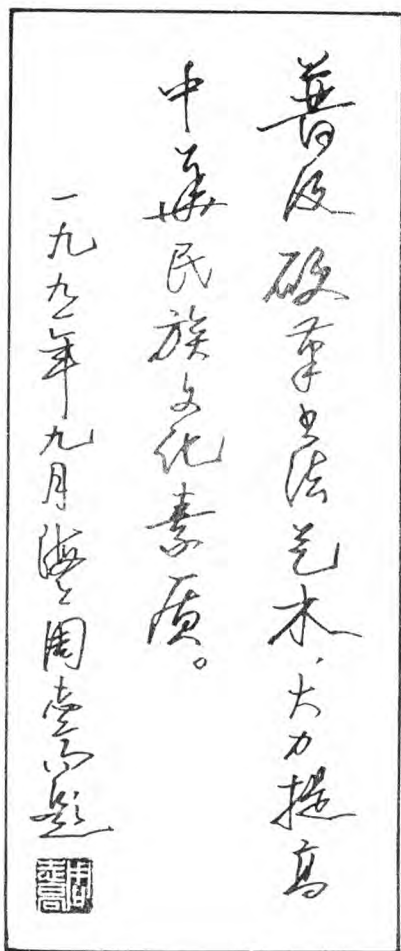 普及硬笔书法艺术，大力提高
中华民族文化素质。
一九九一年九月海上周志高题
周志高